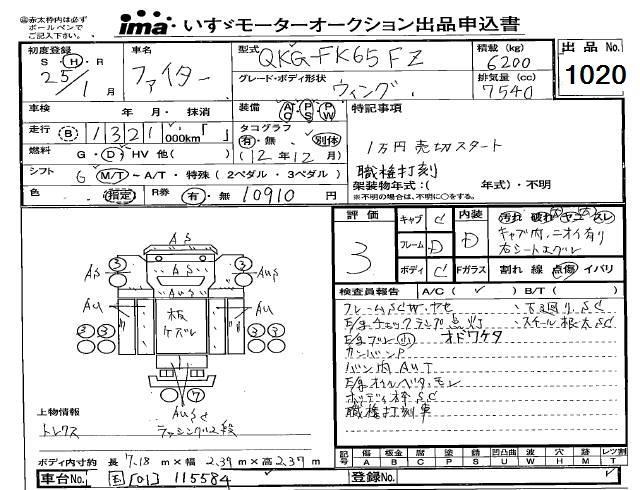 ㊟赤太枠内は必ず
ボールペンで
ご記入下さい。
ima いすゞモーターオークション出品申込書
初度登録
S・H・R
25年
1月
車名
ファイター
型式
QKG-FK65FZ
グレード・ボディ形状
ウィング
積載(kg)
6200
排気量(cc)
7540
出品No.
1020
車検 年 月・抹消
装備 AC PS PW
特記事項
1万円売切スタート
職権打刻
走行 B 1321 000km「 」
タコグラフ
有・無 別体
(12年12月)
燃料 G・D・HV 他( )
シフト 6 M/T～A/T・特殊(2ペダル・3ペダル)
架装物年式:( 年式)・不明
※不明の場合は、不明に〇をする。
色 (指定) R券 有・無 10910円
評価
3
キャブ C
フレーム D
ボディ C
内装 D
Fガラス
汚れ 破れ ヤニ スレ
キャブ内ニオイ有り
右シートエグレ
割れ 線 点傷 イバリ
検査員報告 A/C( ✓ ) B/T( )
フレームSCW.ヤセ
・下回りSC
E/gチェックランプ点灯
・スチール根太SC
E/gブレ小 オドワケタ
カンバンP
バン内AUT
E/gオイルベタ.モレ
ボディ枠SC
職権打刻車
AS
3 3
AS AuS
AuS
AU AU
板
ケズレ
3 3
7
AuSC
上物情報
トレクス
ラッシング2段
ボディ内寸約 長 7.18 m×幅 2.39 m×高 2.37 m
記号 傷A 板金B 腐C 塗P 錆S 凹凸曲U 波W 穴H 跡M レツ割T
車台No. 国[01] 115584
登録No.